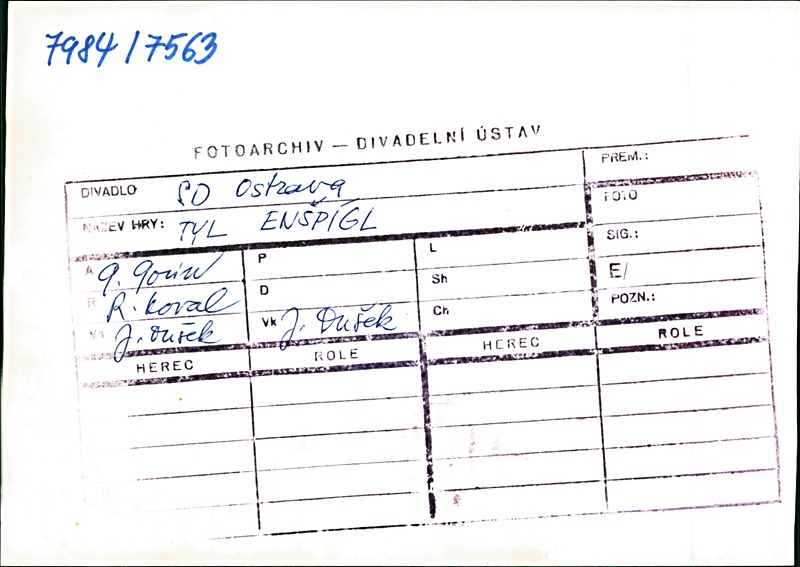 7984/7563
FOTOARCHIV — DIVADELNÍ ÚSTAV
DIVADLO SD Ostrava
PREM.:
NÁZEV HRY: TYL ENŠPÍGL
FOTO
SIG.:
E/
POZN.:
A G. Gorin
P
L
R R. Koval
D
Sh
Vs J. Dušek
Vk J. Dušek
Ch
HEREC ROLE HEREC ROLE